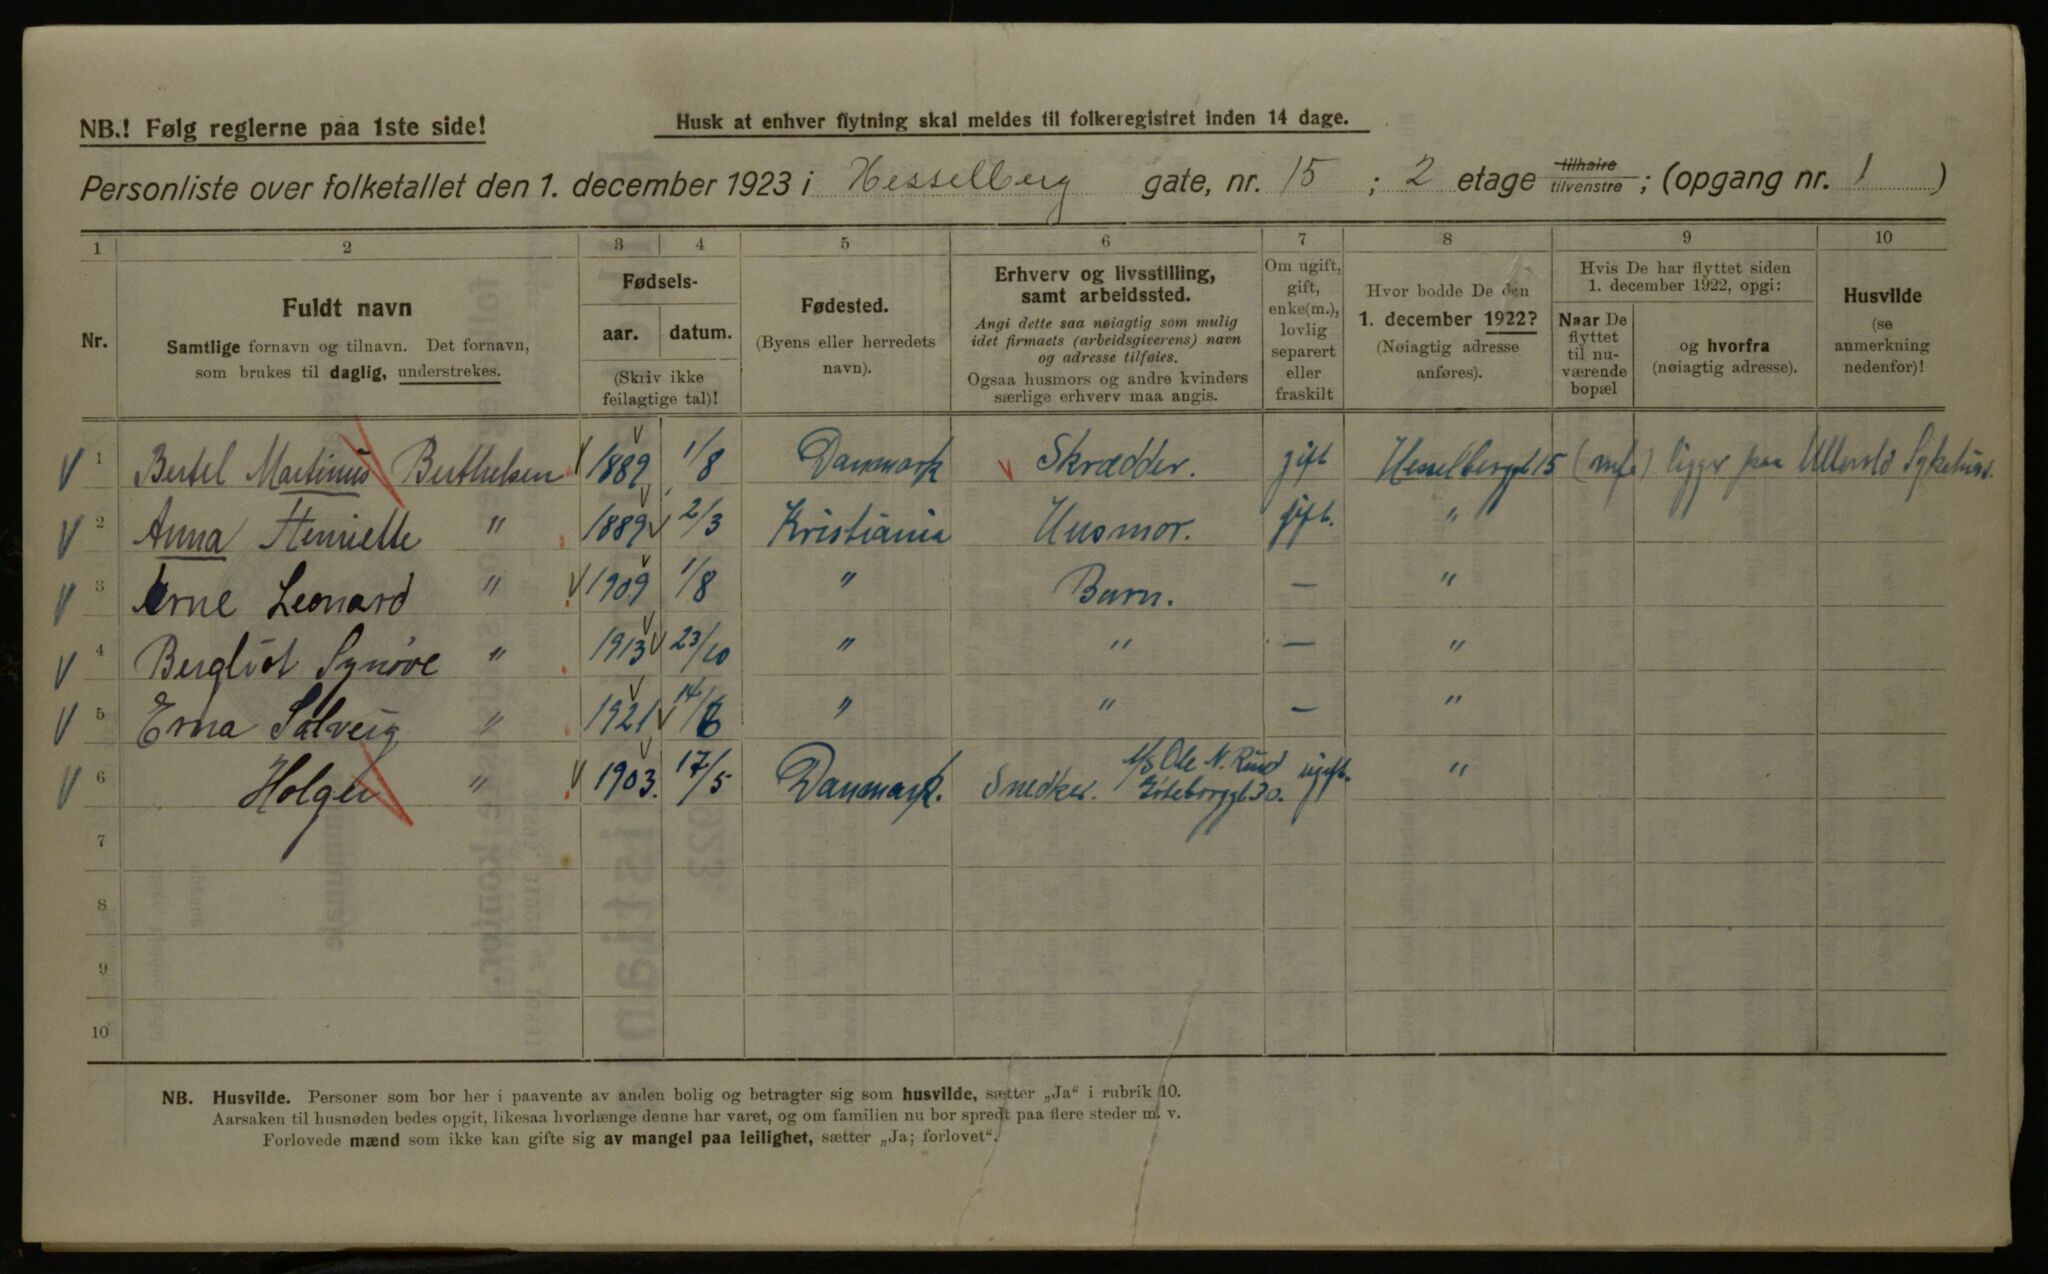 NB.! Følg reglerne paa 1ste side!
Husk at enhver flytning skal meldes til folkeregistret inden 14 dage.
Personliste over folketallet den 1. december 1923 i Hesselberg gate, nr. 15 ; 2 etage tilhøire tilvenstre ; (opgang nr. 1 )
1 2 3 4 5 6 7 8 9 10
Nr.
Fuldt navn
Samtlige fornavn og tilnavn. Det fornavn,
som brukes til daglig, understrekes.
Fødsels-
aar. datum.
(Skriv ikke
feilagtige tal)!
Fødested.
(Byens eller herredets
navn).
Erhverv og livsstilling,
samt arbeidssted.
Angi dette saa nøiagtig som mulig
idet firmaets (arbeidsgiverens) navn
og adresse tilføies.
Ogsaa husmors og andre kvinders
særlige erhverv maa angis.
Om ugift,
gift,
enke(m.),
lovlig
separert
eller
fraskilt
Hvor bodde De den
1. december 1922?
(Nøiagtig adresse
anføres).
Hvis De har flyttet siden
1. december 1922, opgi:
Naar De
flyttet
til nu-
værende
bopæl
og hvorfra
(nøiagtig adresse).
Husvilde
(se
anmerkning
nedenfor)!
V 1 Bertel Martinus Berthelsen V 1889 1/8 Danmark V Skrædder. gift Hesselbergt 15 ligger paa Ullevold Sykehus.
V 2 Anna Henriette " 1889 2/3 Kristiania Husmor. gift. "
V 3 Arne Leonard " V 1909 1/8 " Barn. — "
V 4 Bergliot Synøve " 1913 23/10 " " — "
V 5 Erna Solveig " 1921 14/6 " " — "
V 6 Holger " V 1903. 17/5 Danmark. Snedker. A/S Ole N. Rund Gøteborggt 30. ugift. "
7
8
9
10
NB. Husvilde. Personer som bor her i paavente av anden bolig og betragter sig som husvilde, sætter „Ja“ i rubrik 10.
Aarsaken til husnøden bedes opgit, likesaa hvorlænge denne har varet, og om familien nu bor spredt paa flere steder m. v.
Forlovede mænd som ikke kan gifte sig av mangel paa leilighet, sætter „Ja; forlovet“.